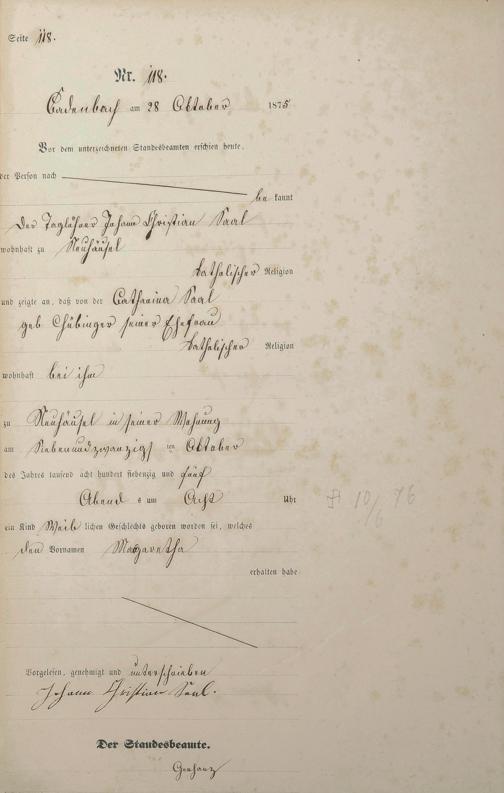 Seite 118.
Nr. 118.
Cadenbach am 28 Oktober 1875
Vor dem unterzeichneten Standesbeamten erschien heute,
der Person nach
be kannt
Der Taglöhner Johann Christian Saal
wohnhaft zu Neuhäusel
katholischer Religion
und zeigte an, daß von der Catharina Saal
geb Chübinger seiner Ehefrau
katholischer Religion
wohnhaft bei ihm
zu Neuhäusel in seiner Wohnung
am Siebenundzwanzigs ten Oktober
des Jahres tausend acht hundert siebenzig und fünf
Abend s um Acht Uhr
ein Kind Weib lichen Geschlechts geboren worden sei, welches
den Vornamen Margaretha
erhalten habe
Vorgelesen, genehmigt und unterschrieben
Johann Christian Saal.
Der Standesbeamte.
10/6 76